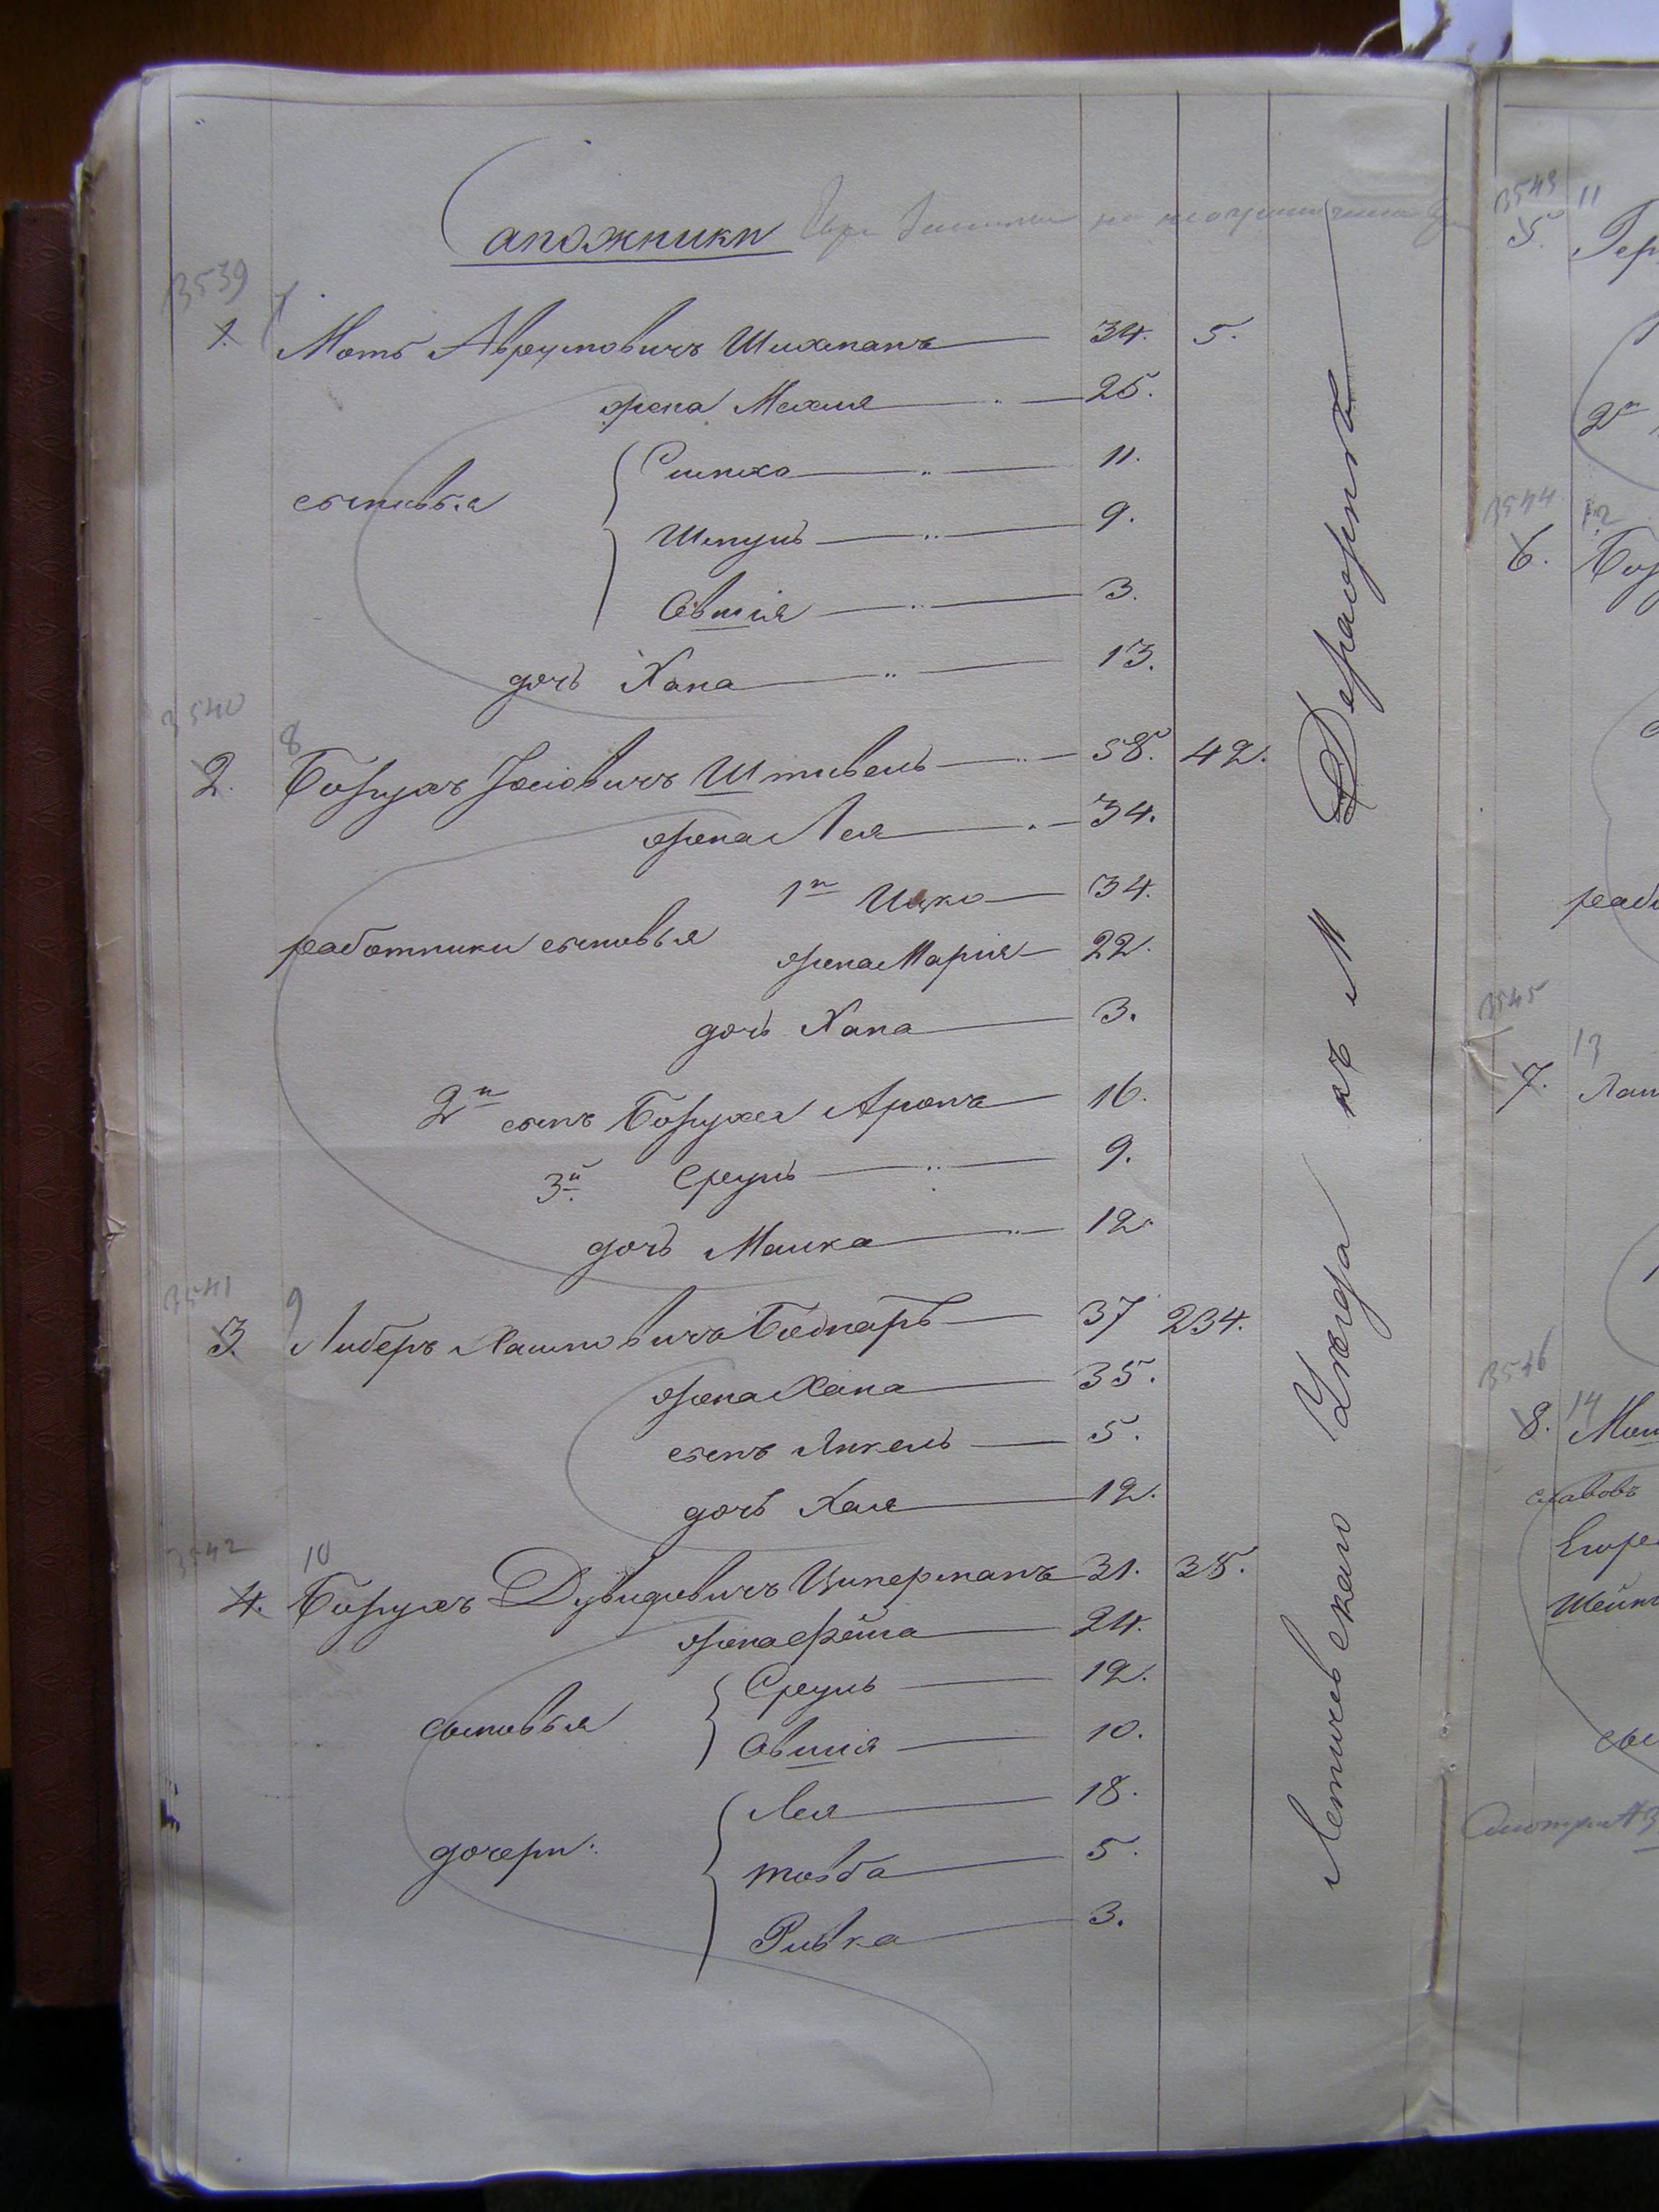 Сапожники
3539
1. 7 Моть Аврумовичъ Шихманъ 34. 5.
жена Махля 25.
сыновья
Симха 11.
Шмуль 9.
Овшія 3.
дочь Хана 13.
3540
2. 8 Борухъ Іосіовичъ Штивель 58. 42.
жена Лея 34.
1й Ицко 34.
работники сыновья
жена Марія 22.
дочь Хана 3.
2й сынъ Боруха Аронъ 16.
3й Сруль 9.
дочь Малка 12
3541
3. 9 Либеръ Хаимовичъ Беднарь 37 234.
жена Хана 35.
сынъ Янкель 5.
дочь Хая 12.
3542
4. 10 Борухъ Дувидовичъ Циперманъ 31. 38.
жена Фейга 24.
сыновья
Сруль 12.
Овшія 10.
дочери:
Лея 18.
Товба 5.
Ривка 3.
Летичевскаго Уѣзда къ М Деражнѣ
3543 11
5.
2й
3544 12
6.
3545
13
7.
3546
14
8.